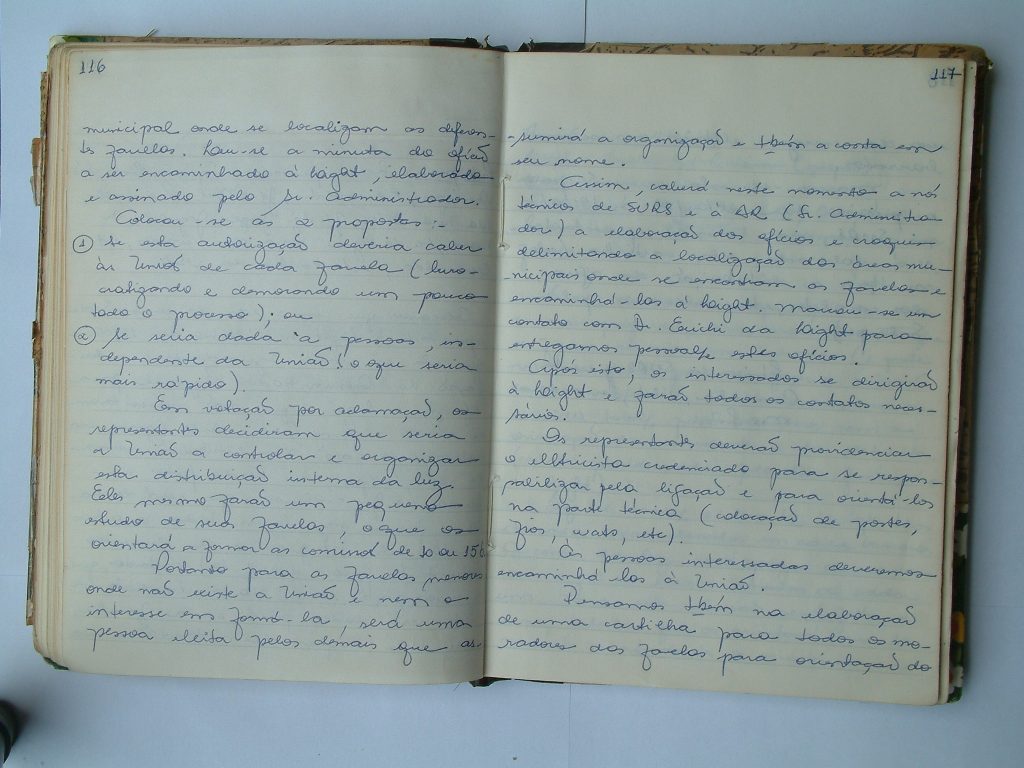 116
municipal onde se localizam as diferen-
tes favelas. Leu-se a minuta do ofício
a ser encaminhado à Light, elaborado
e assinado pelo Sr. Administrador.
Colocou-se as 2 propostas:-
① Se esta autorização deveria caber
às Uniões de cada favela (buro-
cratizando e demorando um pouco
todo o processo); ou
② Se seria dada a pessoas, in-
dependente da União (o que seria
mais rápido).
Em votação por aclamação, os
representantes decidiram que seria
a União a controlar e organizar
esta distribuição interna da luz.
Eles mesmo farão um pequeno
estudo de suas favelas, o que os
orientará a formar as comissões de 10 ou 15
Portanto para as favelas menores
onde não existe a União e nem o
interesse em formá-la, será uma
pessoa eleita pelos demais que as-
117
-sumirá a organização e tbém a conta em
seu nome.
Assim, caberá neste momento a nós
técnicos de SURS e à AR (Sr. Administra
dor) a elaboração dos ofícios e croquis
delimitando a localização das áreas mu-
nicipais onde se encontram as favelas e
encaminhá-los à Light. Marcou-se um
contato com Dr. Eiichi da Light para
entregarmos pessoal/e estes ofícios.
Após isto, os interessados se dirigirão
à Light e farão todos os contatos neces-
sários.
Os representantes deverão providenciar
o eletricista credenciado para se respon-
sabilizar pela ligação e para orientá-los
na parte técnica (colocação de postes,
fios, wats, etc).
Às pessoas interessadas deveremos
encaminhá-los à União.
Pensamos tbém na elaboração
de uma cartilha para todos os mo-
radores das favelas para orientação do